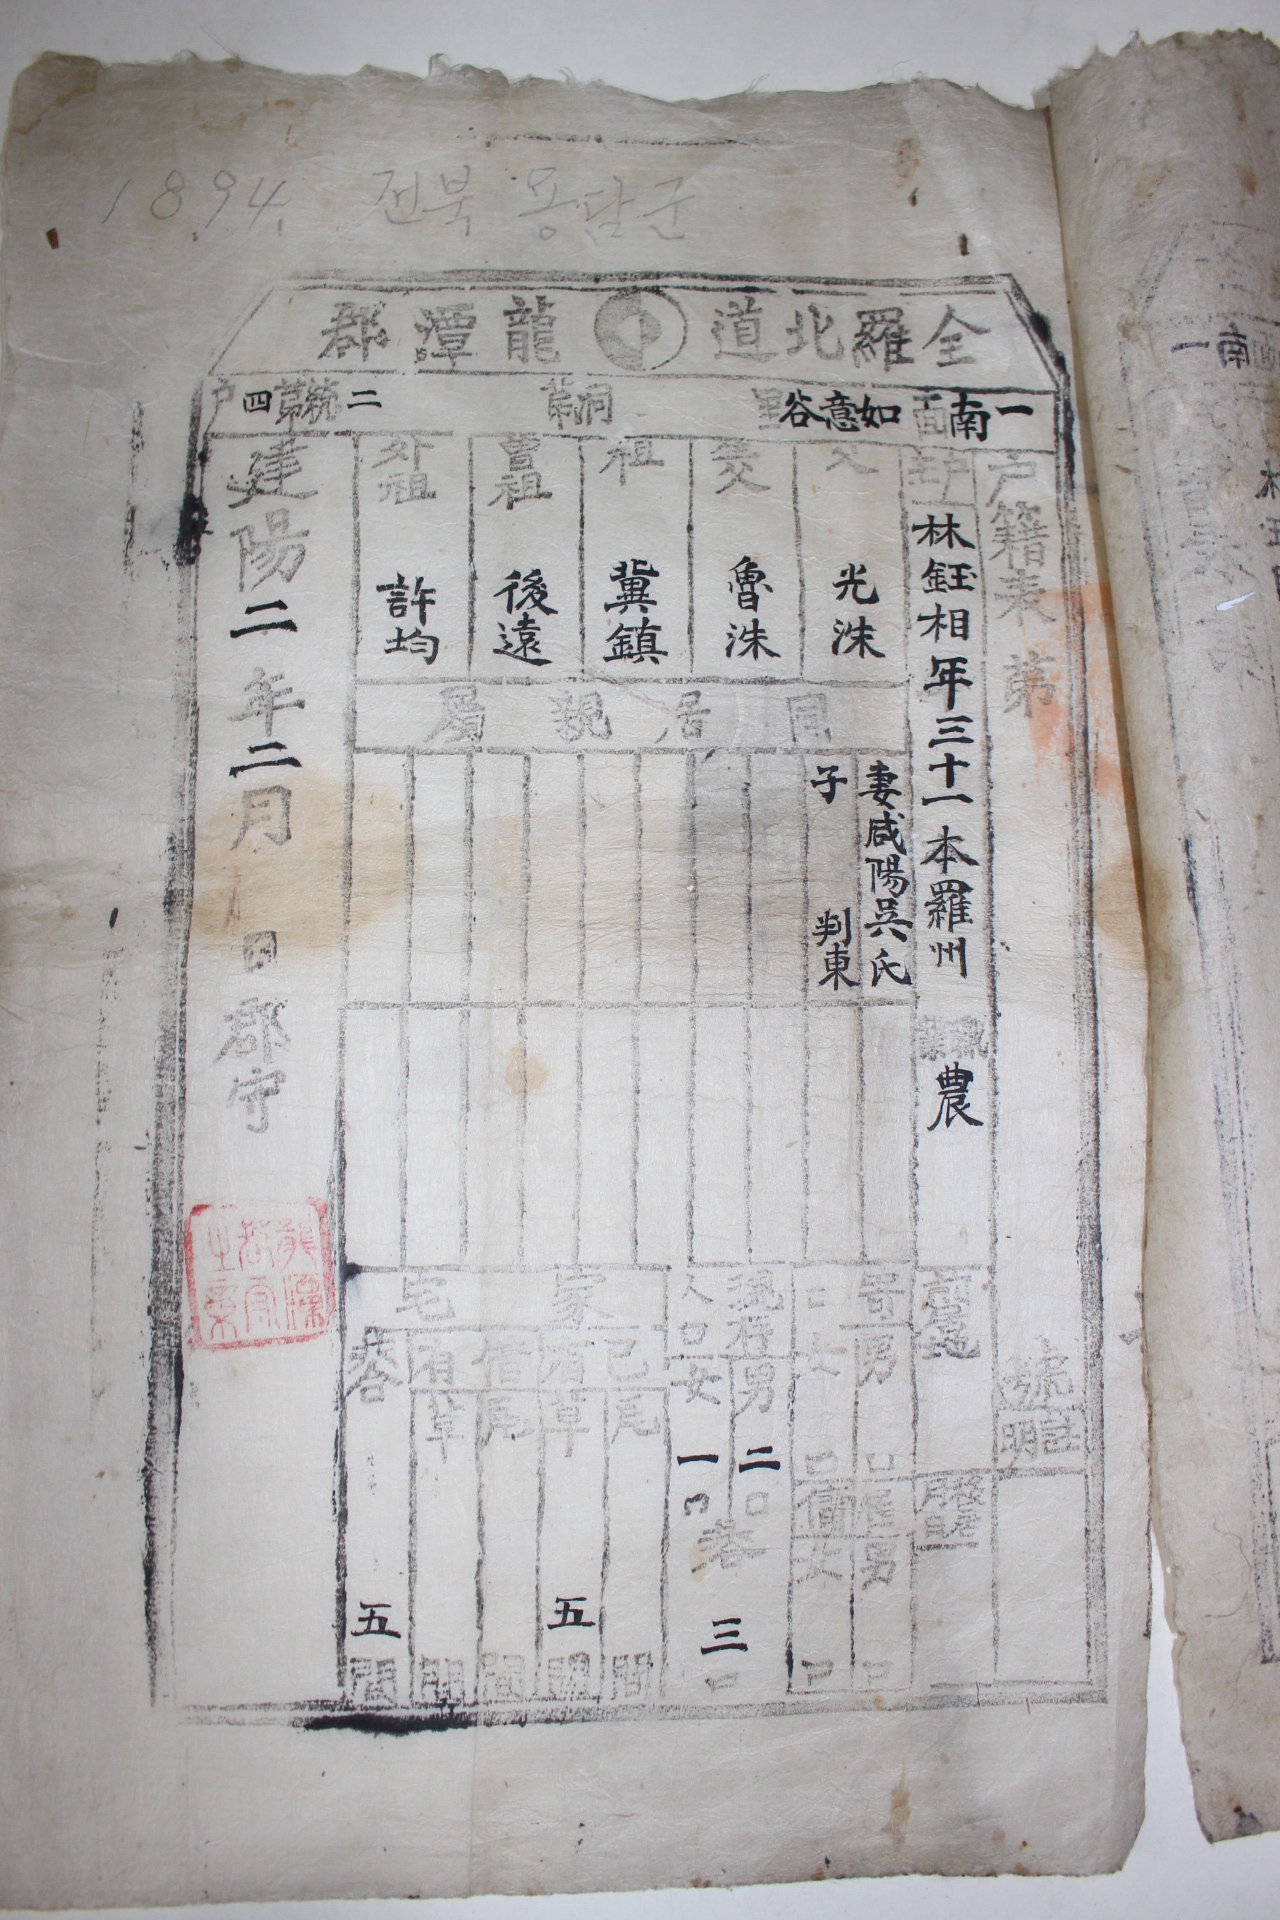 1894. 전북 용담군
全羅北道 龍潭郡
一南面 如意谷里 第 洞 二統第四戶
戶籍表 第 號
註明
戶主 林鈺相 年三十一 本羅州 職業 農 前居地
父 光洙
父 魯洙
祖 冀鎮
曾祖 後遠
外祖 許均
同居親屬
妻咸陽吳氏
子 判東
寄口 男 口 女 口
雇傭 男 口 女 口
現存人口 男 二口 女 一口 共 三口
家宅
已有 瓦 間 草 五間
借有 瓦 間 草 間
共合 五間
建陽二年二月 日郡守
面南一